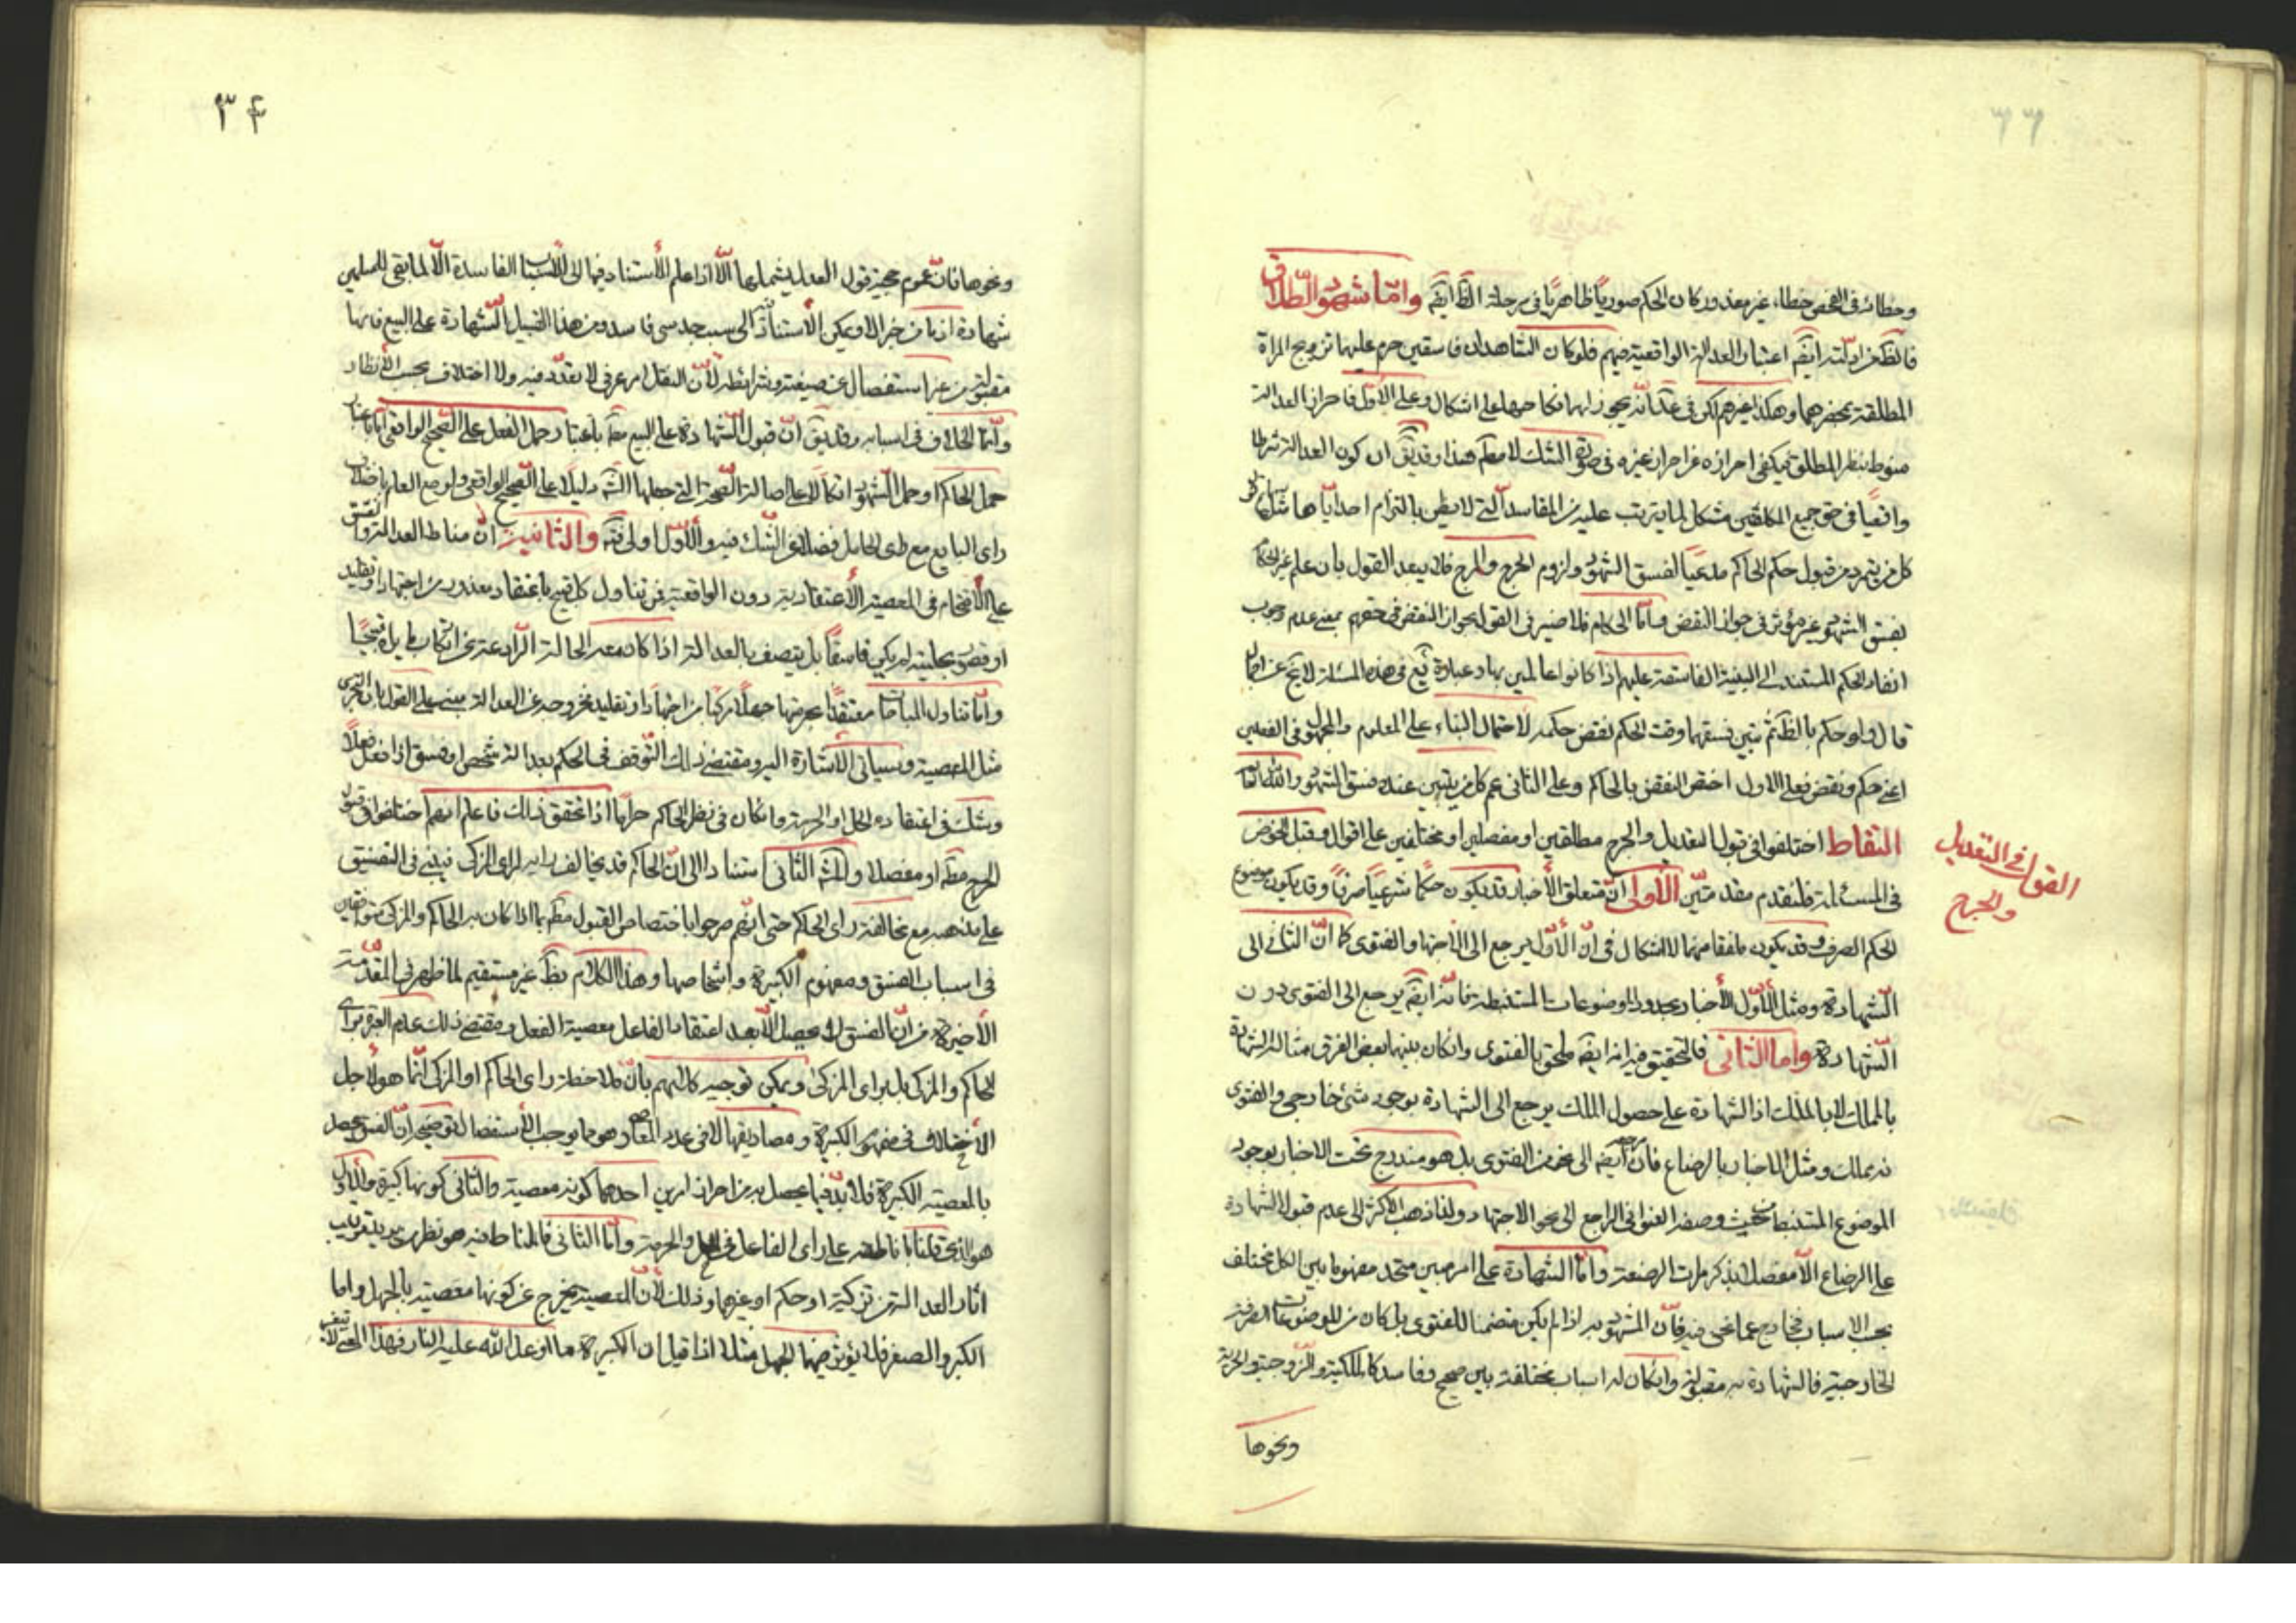 وخطائه فى الفحص خطاء غير معذور كان الحكم صوريا ظاهريا فى مرحلة الظ ايضه واما شهود الطلاق
فالظ من ادلته ايضه اعتبار العدالة الواقعية فيهم فلو كان الشاهدان فاسقين حرم عليهما تزويج المراة
المطلقة بمحضرهما وهكذا غيرهم لكن فى عد انه يجوز لهما نكاحها على اشكال وعلى الاول فاحراز العدالة
منوط بنظر المطلق فيكفى احرازه عن احراز غيره فى صورة الشك لا مطم هذا وقد يق ان كون العدالة شرطا
واقعيا فى حق جميع المكلفين مشكل لما يترتب عليه من المفاسد التى لا يظن بالتزام احد اياها
كل من يتمرد من قبول حكم الحاكم مدعيا لفسق الشهود ولزوم الهرج والمرج فلا يبعد القول بان علم غير الحاكم
بفسق الشهود غير مؤثر فى جواز النقض واما الحكام فلا ضير فى القول بجواز النقض فى حقهم بمعنى عدم وجوب
انفاذ الحكم المستند الى البينة الفاسقة عليهم اذا كانوا عالمين بها وعبارة يع فى هذه المسئلة لا يخ عن اجمال
قال ولو حكم بالظ ثم تبين فسقهما وقت الحكم نقض حكمه لاحتمال البناء على المعلوم والمجهول فى الفعلين
اعنى حكم ونقض فعلى الاول اختص النقض بالحاكم وعلى الثانى عم كل من يتبين عنده فسق الشهود والله العالم
القول فى التعديل
والجرح
التقاط اختلفوا فى قبول التعديل والجرح مطلقين او مفصلين او مختلفين على اقوال وقبل الخوض
فى المسئلة فلنقدم مقدمتين الاولى ان متعلق الاخبار قد يكون حكما شرعيا صرفا وقد يكون موضوع
الحكم الصرف وقد يكون ملفقا منهما لا اشكال فى ان الاول يرجع الى الاجتهاد والفتوى كما ان الثانى الى
الشهادة ومثل الاول الاخبار بحدود الموضوعات المستنبطة فانه ايضه يرجع الى الفتوى دون
الشهادة واما الثانى فالتحقيق فيه انه ايضه ملحق بالفتوى وان كان بينهما بعض الفرق مثاله الشهادة
بالملك لا بالملك اذ الشهادة على حصول الملك يرجع الى الشهادة بوجود شئ خارجى والفتوى
نه بملك ومثل الاخبار بالرضاع فان مرجعه ايضه الى محض الفتوى بل هو مندرج تحت الاخبار بوجود
الموضوع المستنبط من حيث وصفه العنوانى الراجع الى نحو الاجتهاد ولذا ذهب الاكثر الى عدم قبول الشهادة
على الرضاع الا مفصلا بذكر مرات الرضعة واما الشهادة على امر مبين متحد مفهوما بين الكل مختلف
بحسب الاسباب فخارج عما نحن فيه فان المشهود به اذا لم يكن متضمنا للفتوى بل كان من الموضوعات الصرفة
الخارجية فالشهادة به مقبولة وان كان له اسباب مختلفة بين صحيح وفاسد كالملكية والزوجية والحرية
ونحوها
٣۴
ونحوها فان عموم حجية قول العدل يشملها الا اذا علم الاستناد فيها الى الاسباب الفاسدة الا لما بقى للمسلمين
شهادة اذ ما من خبر الا ويمكن الاستناد الى سبب حدسى فاسد ومن هذا القبيل الشهادة على البيع فانها
مقبولة من غير استفصال عن صيغته وشرائطه لان النقل امر عرفى لا تعدد فيه ولا اختلاف بحسب الانظار
وانما الخلاف فى اسبابه وقد يق ان قبول الشهادة على البيع مطم باعتبار حمل الفعل على الصحيح الواقعى اما باعتبار
حمل الحاكم او حمل الشهود اتكالا على اصالة الصحة التى جعلها الشه دليلا على الصحيح الواقعى ولو مع العلم باختلاف
راى البايع مع راى الحامل فضلا عن الشك فيه والاول اولى فته والثانية ان مناط العدالة والفسق
على الاقتحام فى المعصية الاعتقادية دون الواقعية فمن تناول كل قبيح باعتقاد معذور من اجتهاد او تقليد
او قصور بحليته لم يكن فاسقا بل يتصف بالعدالة اذا كان معه الحالة الرادعة عن ارتكاب ما يراه قبيحا
واما تناول المباحات معتقدا بحرمتها جهلا مركبا من اجتهاد او تقليد فخروجه عن العدالة مبنى على القول بان التجرى
مثل المعصية وسياتى الاشارة اليه ومقتضى ذلك التوقف فى الحكم بعدالة شخص او فسق اذا فعل فعلا
وشك فى اعتقاده الحل او الحرمة وان كان فى نظر الحاكم حراما اذا تحقق ذلك فاعلم انهم اختلفوا فى قبول
الجرح مطم او مفصلا والمشه الثانى استنادا الى ان الحاكم قد يخالف رايه لراى المزكى فيبنى فى التفسيق
على مذهبه مع مخالفة راى الحاكم حتى انهم صرحوا باختصاص القبول مطم بما اذا كان به الحاكم والمزكى متوافقين
فى اسباب الفسق ومفهوم الكبيرة واشخاصها وهذا الكلام بظ غير مستقيم لما ظهر فى المقدمة
الاخيرة من ان الفسق لا يحصل الا بعد اعتقاد الفاعل معصية الفعل ومقتضى ذلك عدم العبرة براى
الحاكم والمزكى بل براى المزكى ويمكن توجيه كلامهم بان ملاحظة راى الحاكم او المزكى انما هو لاجل
الاختلاف فى مفهوم الكبيرة ومصاديقها لا فى عدد المعاصى وهو مما يوجب الاستفصال توضيح ان الفسق يحصل
بالمعصية الكبيرة فلا بد فيما يحصل به من احراز امرين احدهما كونه معصية والثانى كونها كبيرة والاول
هو الذى قلنا باناطته على راى الفاعل فى الحل والحرمة واما الثانى فالمناط فيه هو نظر من يريد ترتيب
اثار العدالة من تزكية او حكم او غيرها وذلك لان المعصية يخرج عن كونها معصية بالجهل واما
الكبر والصغر فلا يؤثر فيهما الجهل مثلا اذا قيل ان الكبيرة ما اوعد الله عليه النار فهذا المعنى